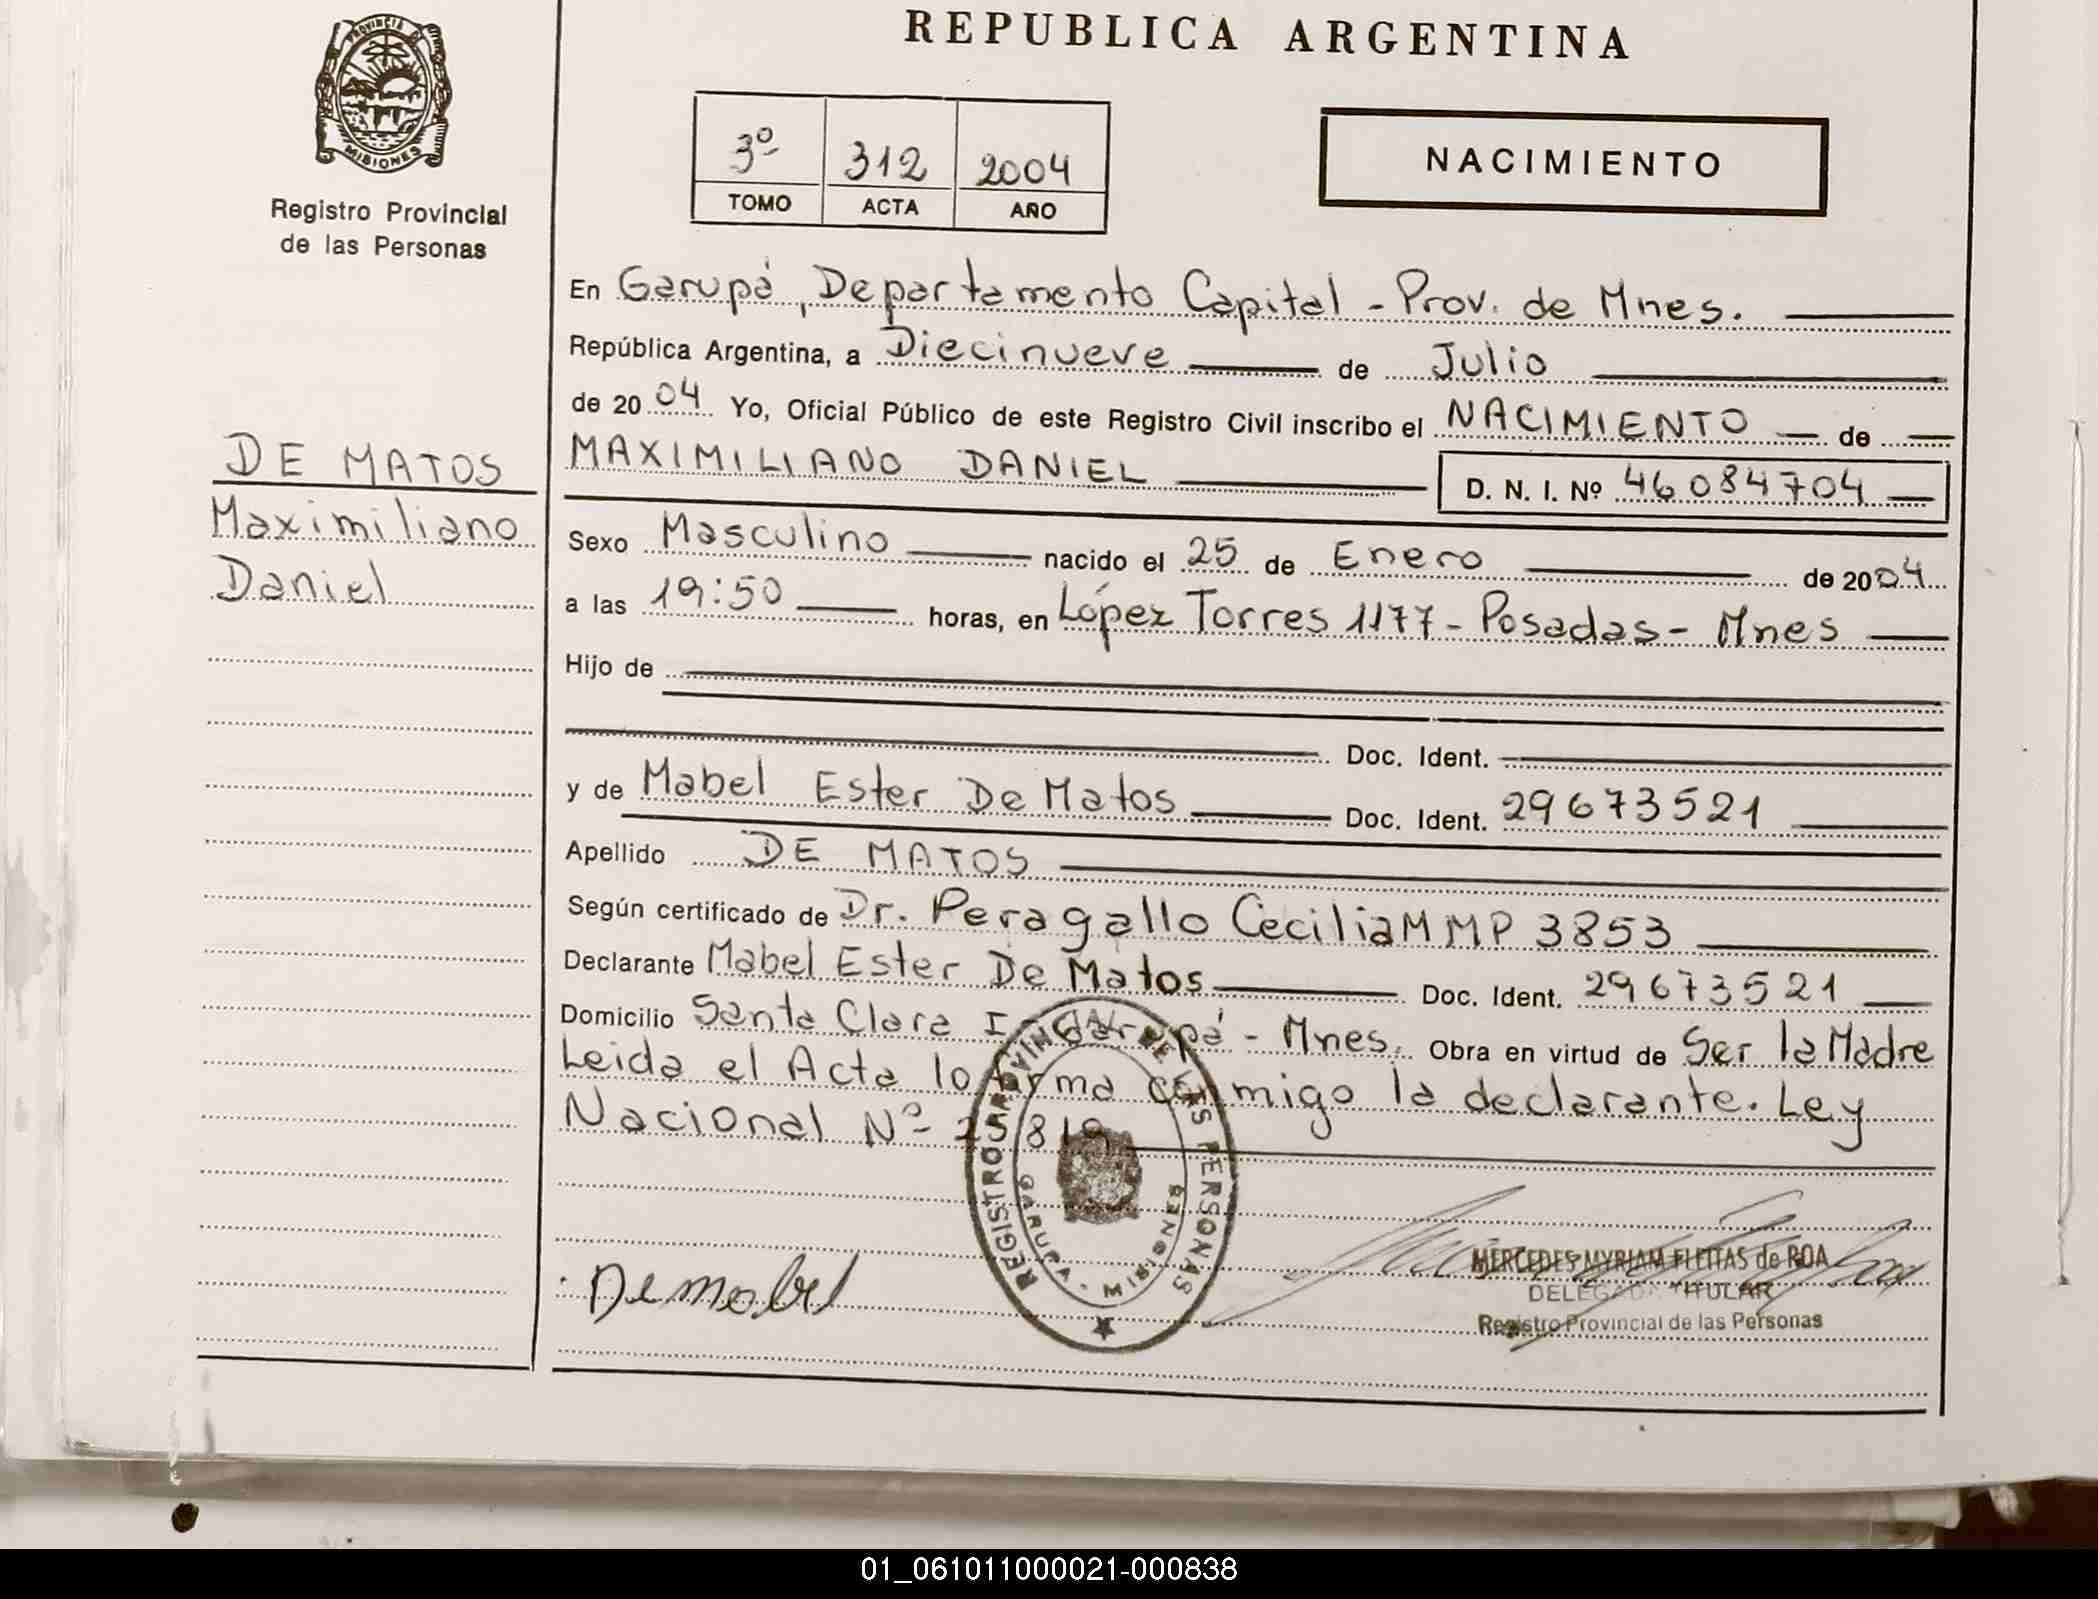 REPUBLICA ARGENTINA
PROVINCIA D
MISIONES
Registro Provincial
de las Personas
3º 312 2004
TOMO ACTA AÑO
NACIMIENTO
En Garupá, Departamento Capital - Prov. de Mnes.
República Argentina, a Diecinueve de Julio
de 2004 Yo, Oficial Público de este Registro Civil inscribo el NACIMIENTO de
MAXIMILIANO DANIEL D. N. I. Nº 46084704
DE MATOS
Maximiliano
Daniel
Sexo Masculino nacido el 25 de Enero de 2004
a las 19:50 horas, en López Torres 1177 - Posadas - Mnes
Hijo de
Doc. Ident.
y de Mabel Ester De Matos Doc. Ident. 29673521
Apellido DE MATOS
Según certificado de Dr. Peragallo Cecilia M MP 3853
Declarante Mabel Ester De Matos Doc. Ident. 29673521
Domicilio Santa Clara I - Garupá - Mnes. Obra en virtud de Ser la Madre
Leida el Acta lo firma conmigo la declarante. Ley
Nacional Nº 25819
REGISTRO PROVINCIAL DE LAS PERSONAS
GARUPA - MISIONES
MERCEDES MYRIAM FLEITAS de ROA
DELEGADA TITULAR
Registro Provincial de las Personas
01_061011000021-000838